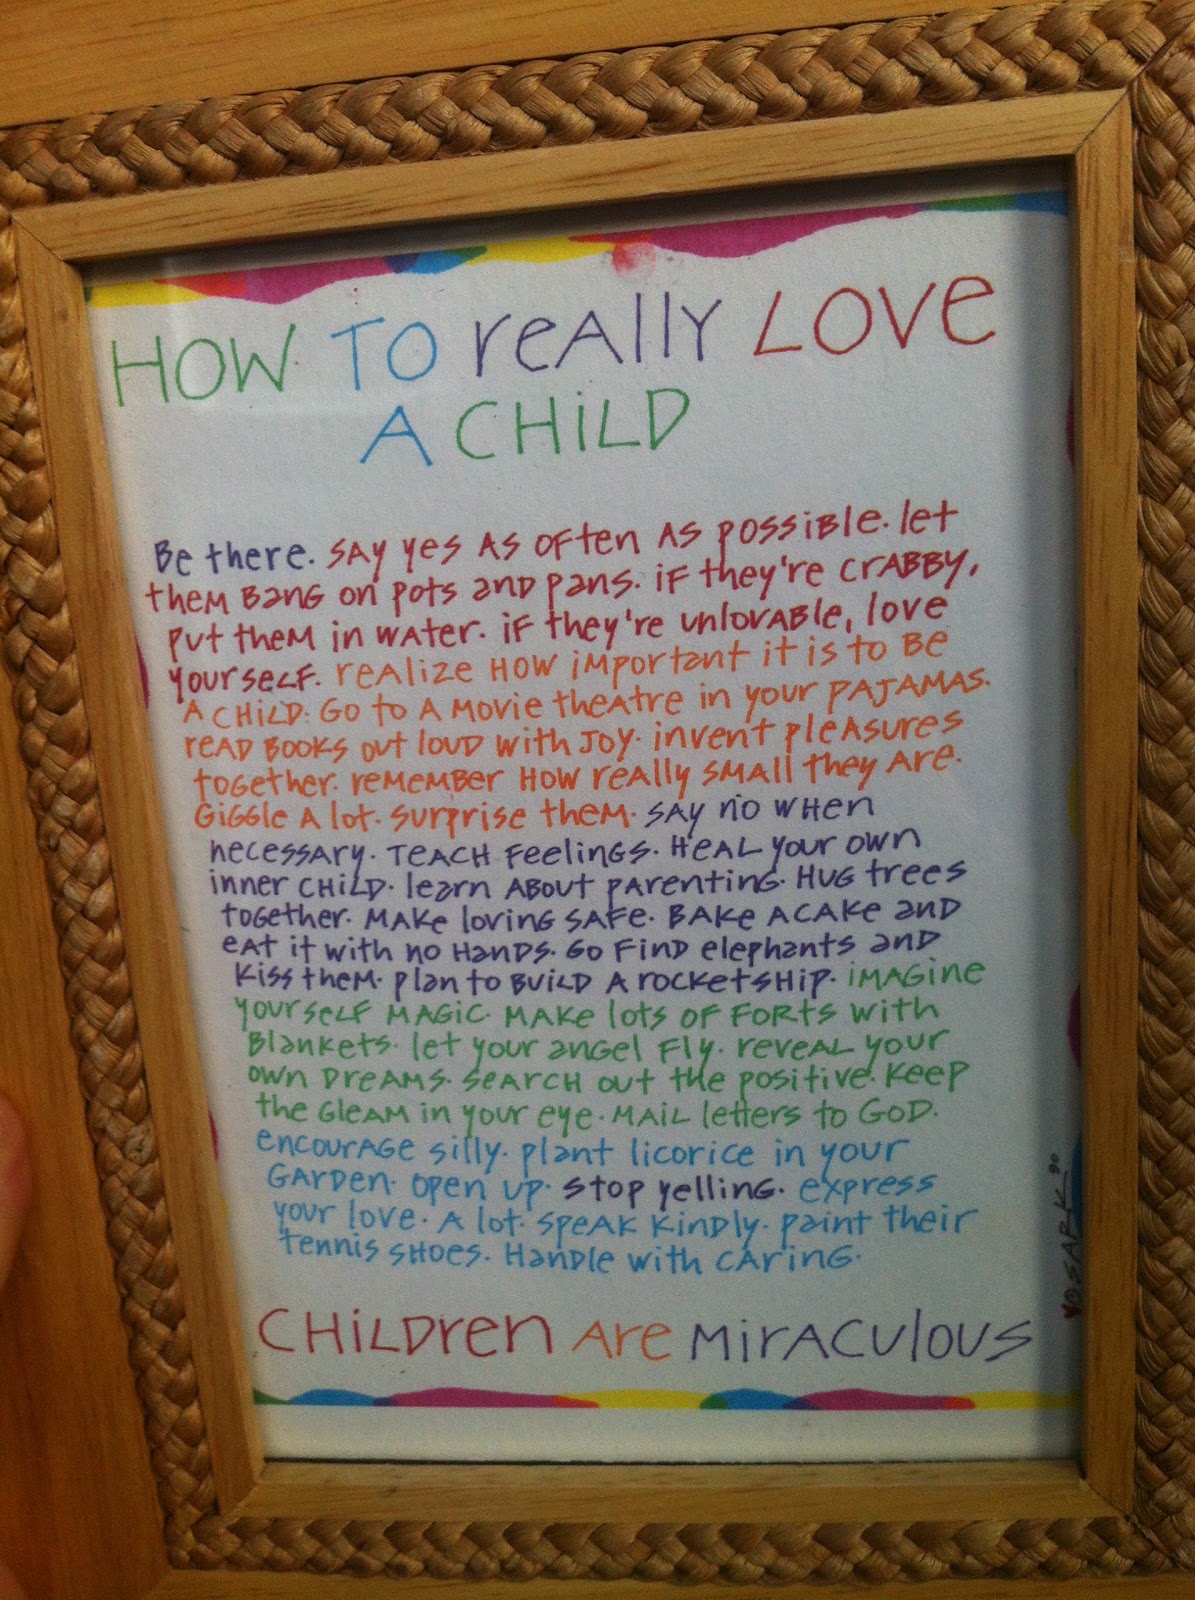 HOW TO really LOVE
A CHILD
Be there. Say yes as often as possible. let
them bang on pots and pans. if they're crabby,
put them in water. if they're unlovable, love
yourself. realize how important it is to be
a child. Go to a movie theatre in your pajamas.
read books out loud with joy. invent pleasures
together. remember how really small they are.
Giggle a lot. surprise them. Say no when
necessary. Teach feelings. Heal your own
inner child. learn about parenting. Hug trees
together. Make loving safe. Bake a cake and
eat it with no hands. Go find elephants and
kiss them. plan to build a rocketship. imagine
yourself magic. Make lots of forts with
blankets. let your angel fly. reveal your
own dreams. search out the positive. keep
the gleam in your eye. mail letters to God.
encourage silly. plant licorice in your
garden. open up. stop yelling. express
your love. A lot. speak kindly. paint their
tennis shoes. Handle with caring.
CHILDren Are MirACulous
SARK 90